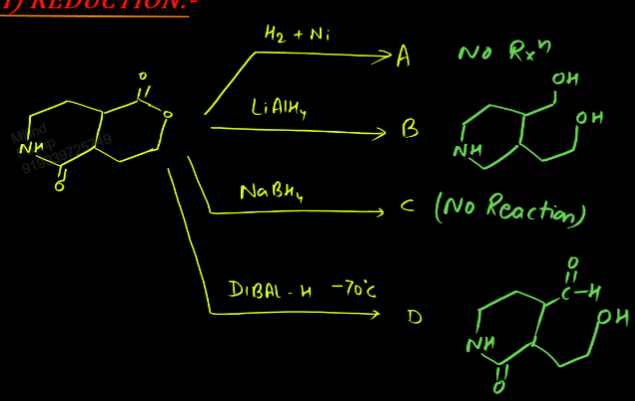 1) REDUCTION:-
H₂ + Ni
A
No Rxⁿ
O
O
NH
O
LiAlH₄
B
OH
OH
NH
NaBH₄
C (No Reaction)
DIBAL-H -70°C
D
O
C-H
OH
NH
O